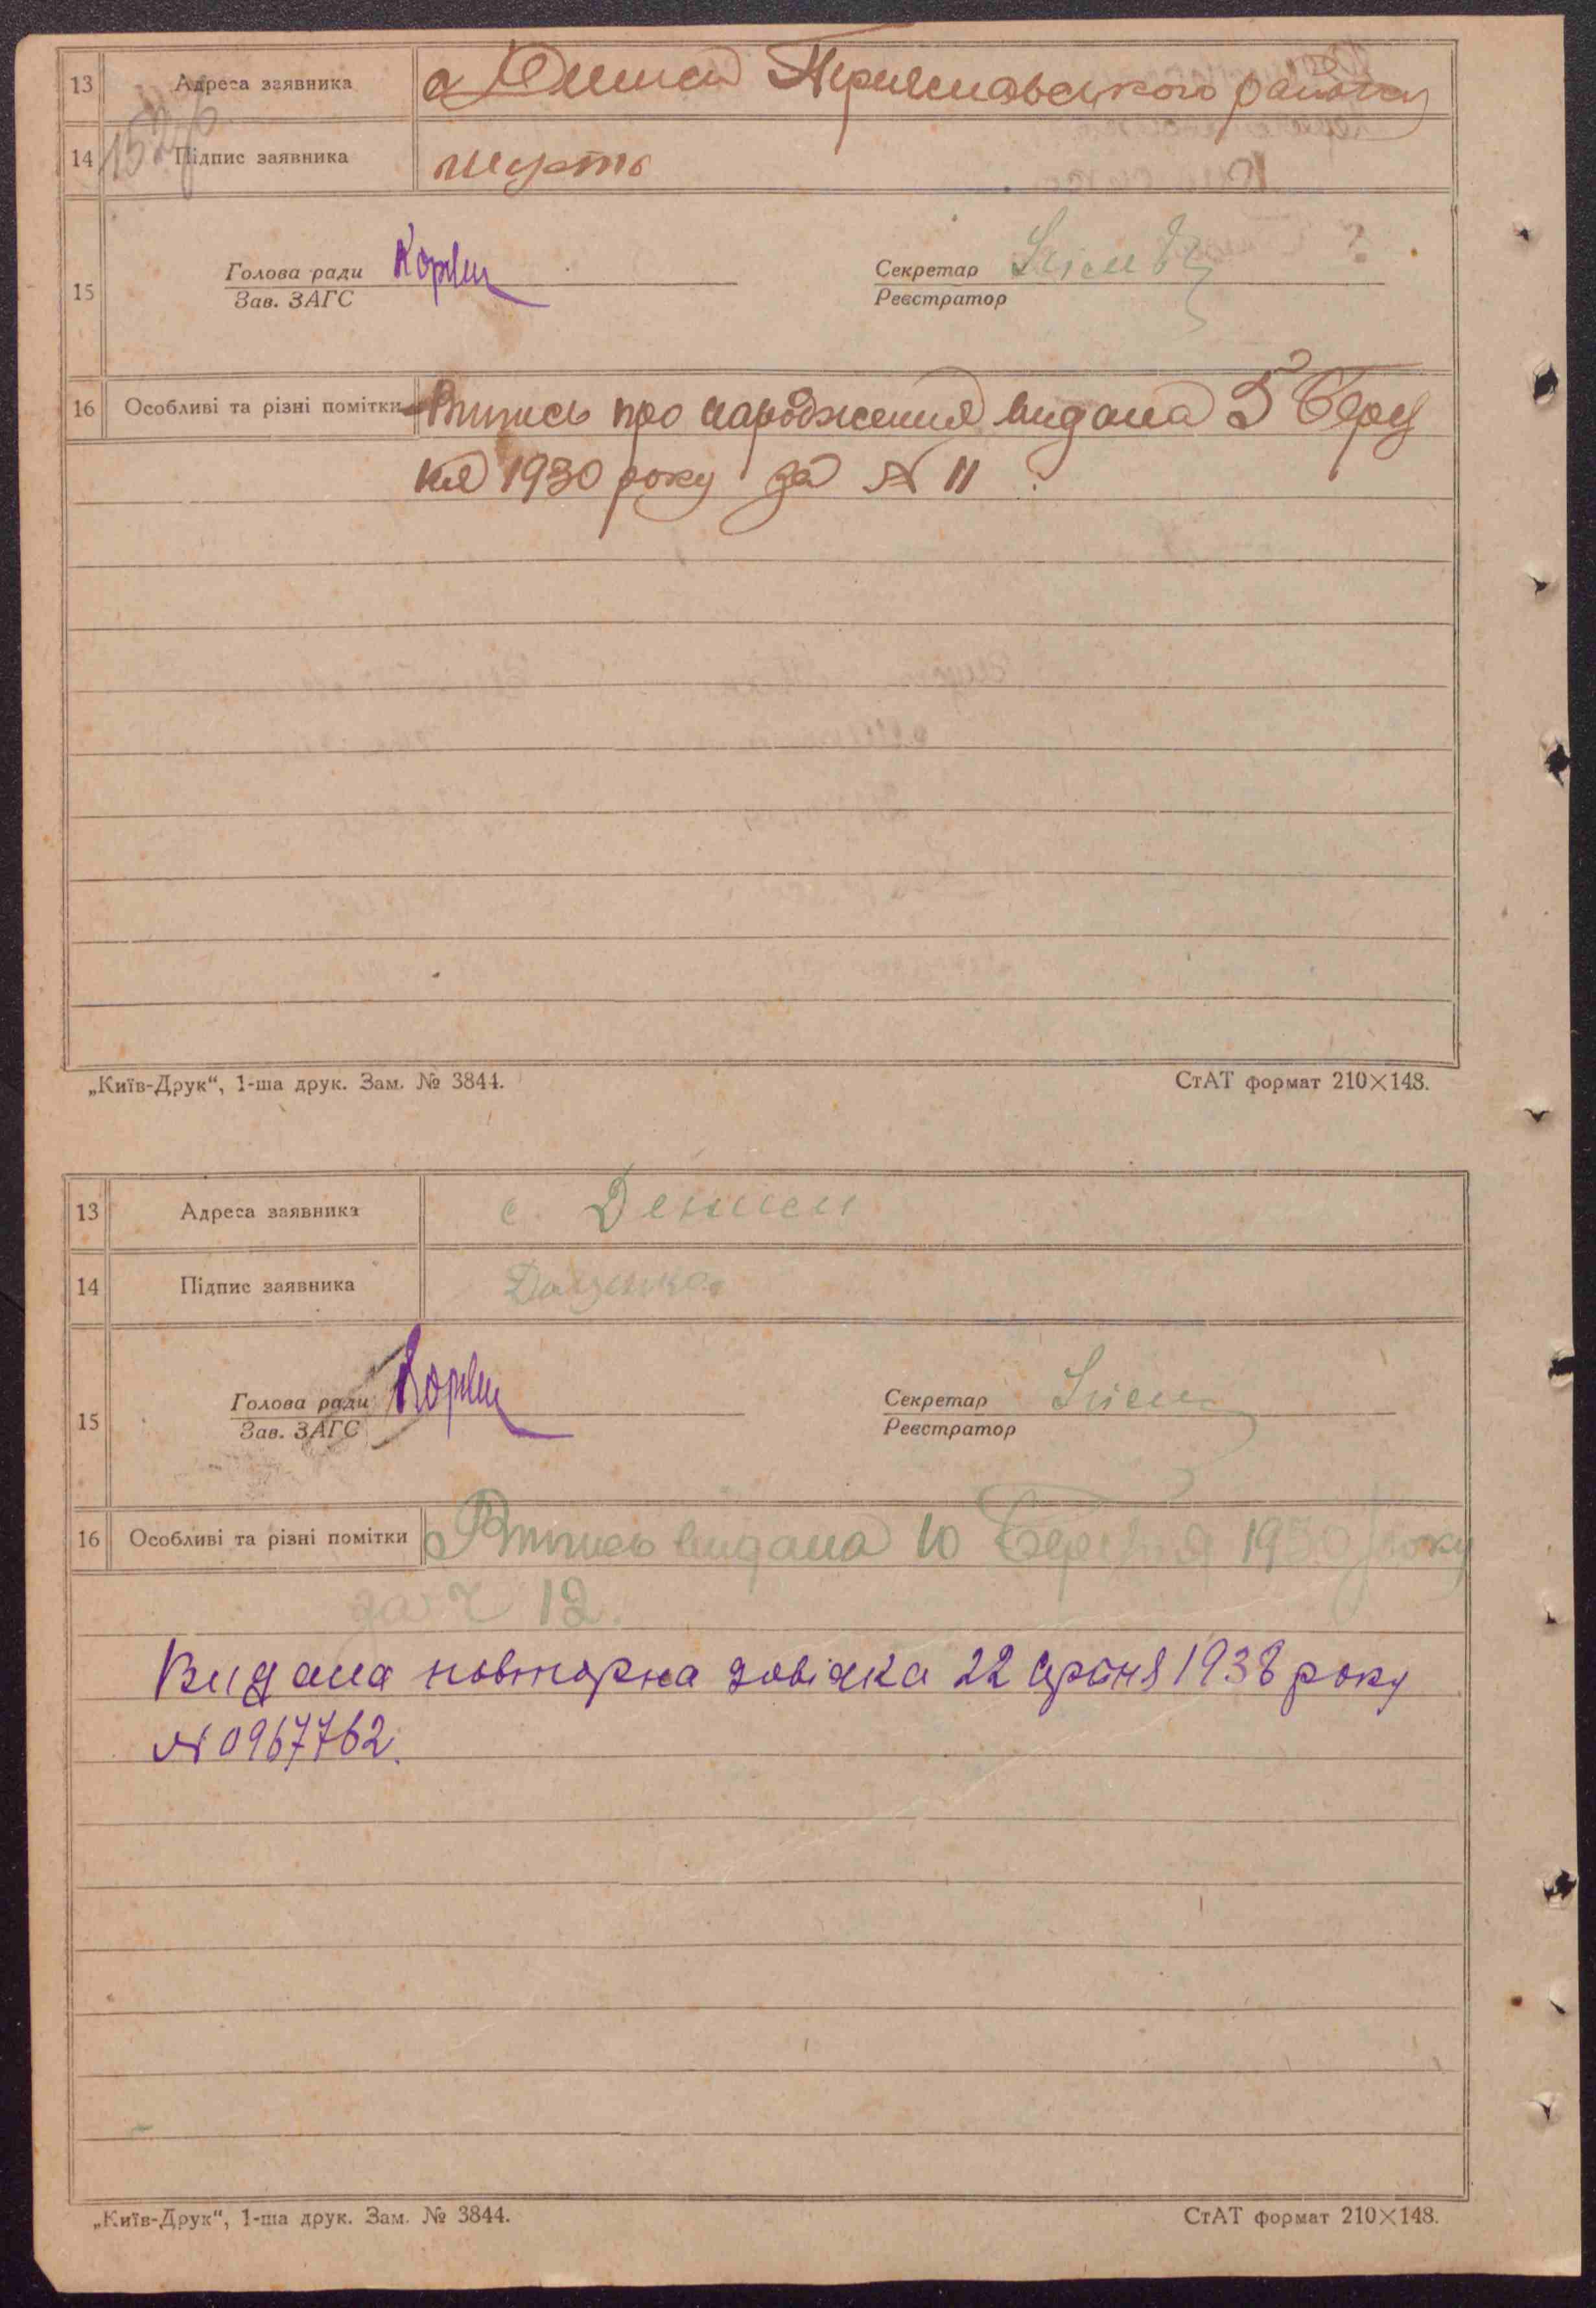 13 Адреса заявника с Дениси Переяславського району
14 Підпис заявника шурть
15 Голова ради Коржи Секретар
Зав. ЗАГС Реєстратор
16 Особливі та різні помітки Випись про народження видана 5 берез
ня 1930 року за № 11
„Київ-Друк“, 1-ша друк. Зам. № 3844. СтАТ формат 210×148.
13 Адреса заявника с. Дениси
14 Підпис заявника Даценко
15 Голова ради Коржи Секретар
Зав. ЗАГС Реєстратор
16 Особливі та різні помітки Випись видана 10 березня 1930 року
за № 12.
Видана повторна довідка 22 серпня 1938 року
№ 0967762.
„Київ-Друк“, 1-ша друк. Зам. № 3844. СтАТ формат 210×148.